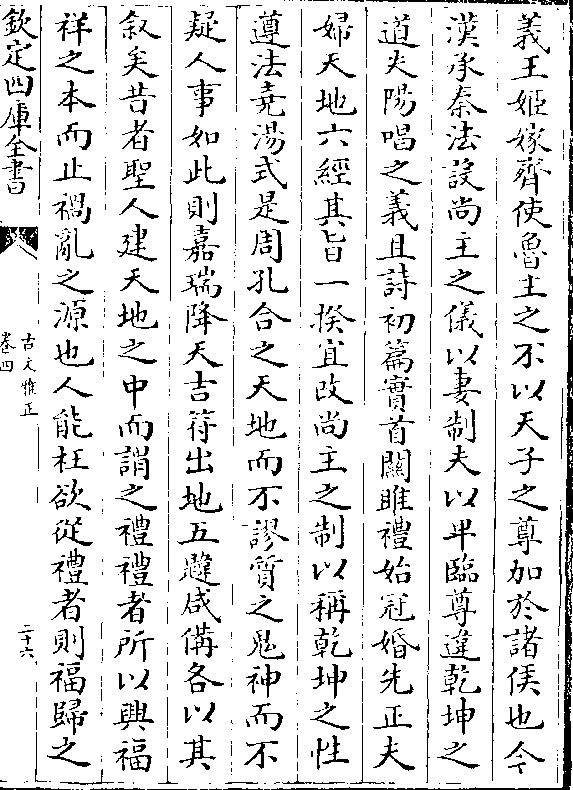 義王姬嫁齊使魯主之不以天子之尊加於諸侯也今
漢承秦法設尚主之儀以妻制夫以卑臨尊違乾坤之
道失陽唱之義且詩初篇實首關雎禮始冠婚先正夫
婦天地六經其旨一揆宜改尚主之制以稱乾坤之性
遵法堯湯式是周孔合之天地而不謬質之鬼神而不
疑人事如此則嘉瑞降天吉符出地五韙咸備各以其
叙矣昔者聖人建天地之中而謂之禮禮者所以興福
祥之本而止禍亂之源也人能枉欲從禮者則福歸之
欽定四庫全書
古文雅正
卷四
二十六